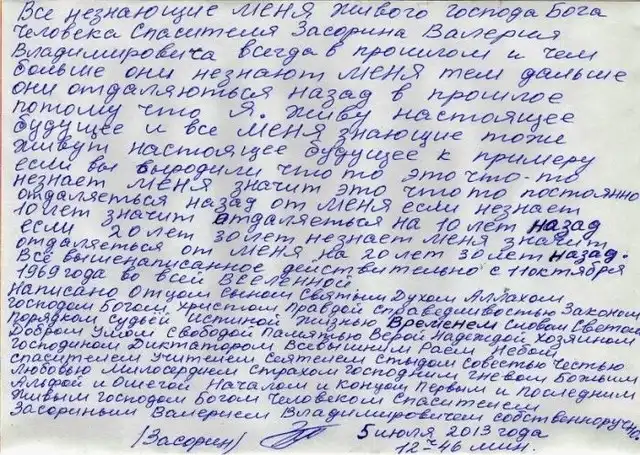 Все незнающие меня живого господа Бога
человека Спасителя Засорина Валерия
Владимировича всегда в прошлом и чем
больше они незнают меня тем дальше
они отдаляються назад в прошлое
потому что Я. живу настоящее
будущее и все меня знающие тоже
живут настоящее будущее к примеру
если вы выродили что то это что-то
незнает меня значит это что то постоянно
отдаляеться назад от меня если незнает
10 лет значит отдаляеться на 10 лет назад
если 20 лет 30 лет незнает меня значит
отдаляеться от меня на 20 лет 30 лет назад.
Всё вышенаписанное действительно с 11 октября
1969 года во всей Вселенной
Написано Отцом Сыном Святым Духом Аллахом
господом Богом Христом Правдой Справедливостью Законом
Порядком Судьёй Истиной Жизнью Временем Словом Светом
Добром Умом Свободой Памятью Верой Надеждой Хозяином
Господином Диктатором Всевышним Раем Небом
Спасителем Учителем Сеятелем Стыдом Совестью Честью
Любовью Милосердием Страхом Господним Гневом Божьим
Альфой и Омегой Началом и Концом Первым и Последним
Живым господом Богом Человеком Спасителем
Засориным Валерием Владимировичем собственноручно
(Засорин) 5 июля 2013 года
12 ч 46 мин.